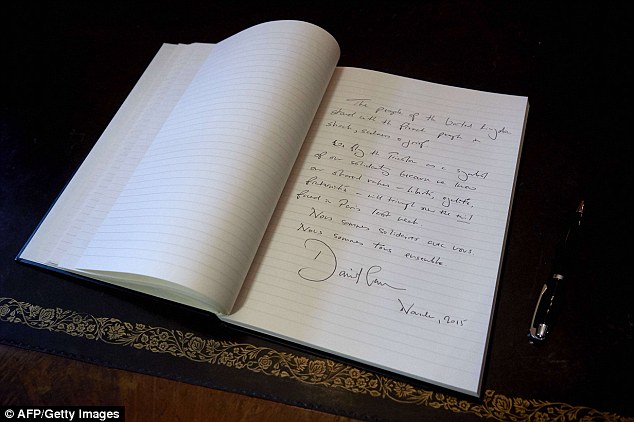 The people of the United Kingdom
stand with the French people in
shock, sadness & grief
We fly the Tricolour as a symbol
of our solidarity because we know
our shared values – liberté, egalité,
fraternité – will triumph over the evil
faced in Paris last week
Nous sommes solidaires avec vous
Nous sommes tous ensemble
David Cameron
November, 2015
© AFP/Getty Images